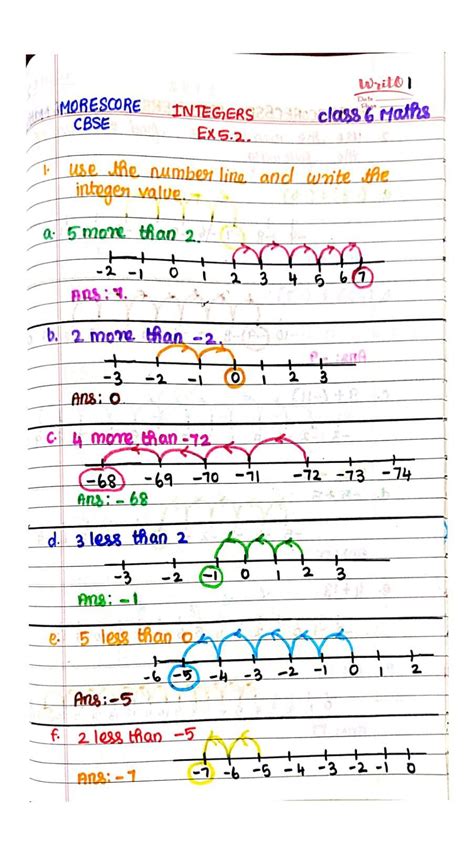 Write 1
Date
MORESCORE INTEGERS class 6 Maths
CBSE Ex 5.2.
1. use the number line and write the
integer value.
a. 5 more than 2.
-2 -1 0 1 2 3 4 5 6 7
Ans: 7.
b. 2 more than -2.
-3 -2 -1 0 1 2 3
Ans: 0
c. 4 more than -72
-68 -69 -70 -71 -72 -73 -74
Ans: -68
d. 3 less than 2
-3 -2 -1 0 1 2 3
Ans: -1
e. 5 less than 0
-6 -5 -4 -3 -2 -1 0 1 2
Ans: -5
f. 2 less than -5
-7 -6 -5 -4 -3 -2 -1 0
Ans: -7